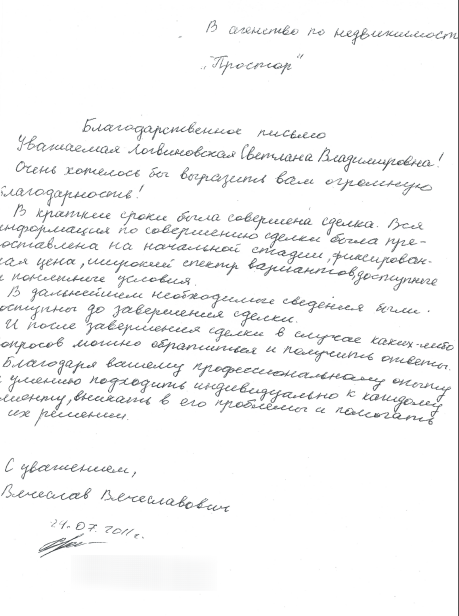 В агенство по недвижимост
„Простор"
Благодарственное письмо
Уважаемая Логвиновская Светлана Владимировна!
Очень хотелось бы выразить вам огромную
благодарность!
В краткие сроки была совершена сделка. Вся
информация по совершению сделки была пре-
оставлена на начальной стадии, фиксирован-
ная цена, широкий спектр вариантов, доступные
и понятные условия.
В дальнейшем необходимые сведения были
оступны до завершения сделки.
И после завершения сделки в случае каких-либо
опросов можно обратиться и получить ответы.
Благодаря вашему профессиональному опыту
и умению подходить индивидуально к каждому
лиенту, вникать в его проблемы и помогать
их решении.
С уважением,
Вячеслав Вячеславович
24.07.2011г.